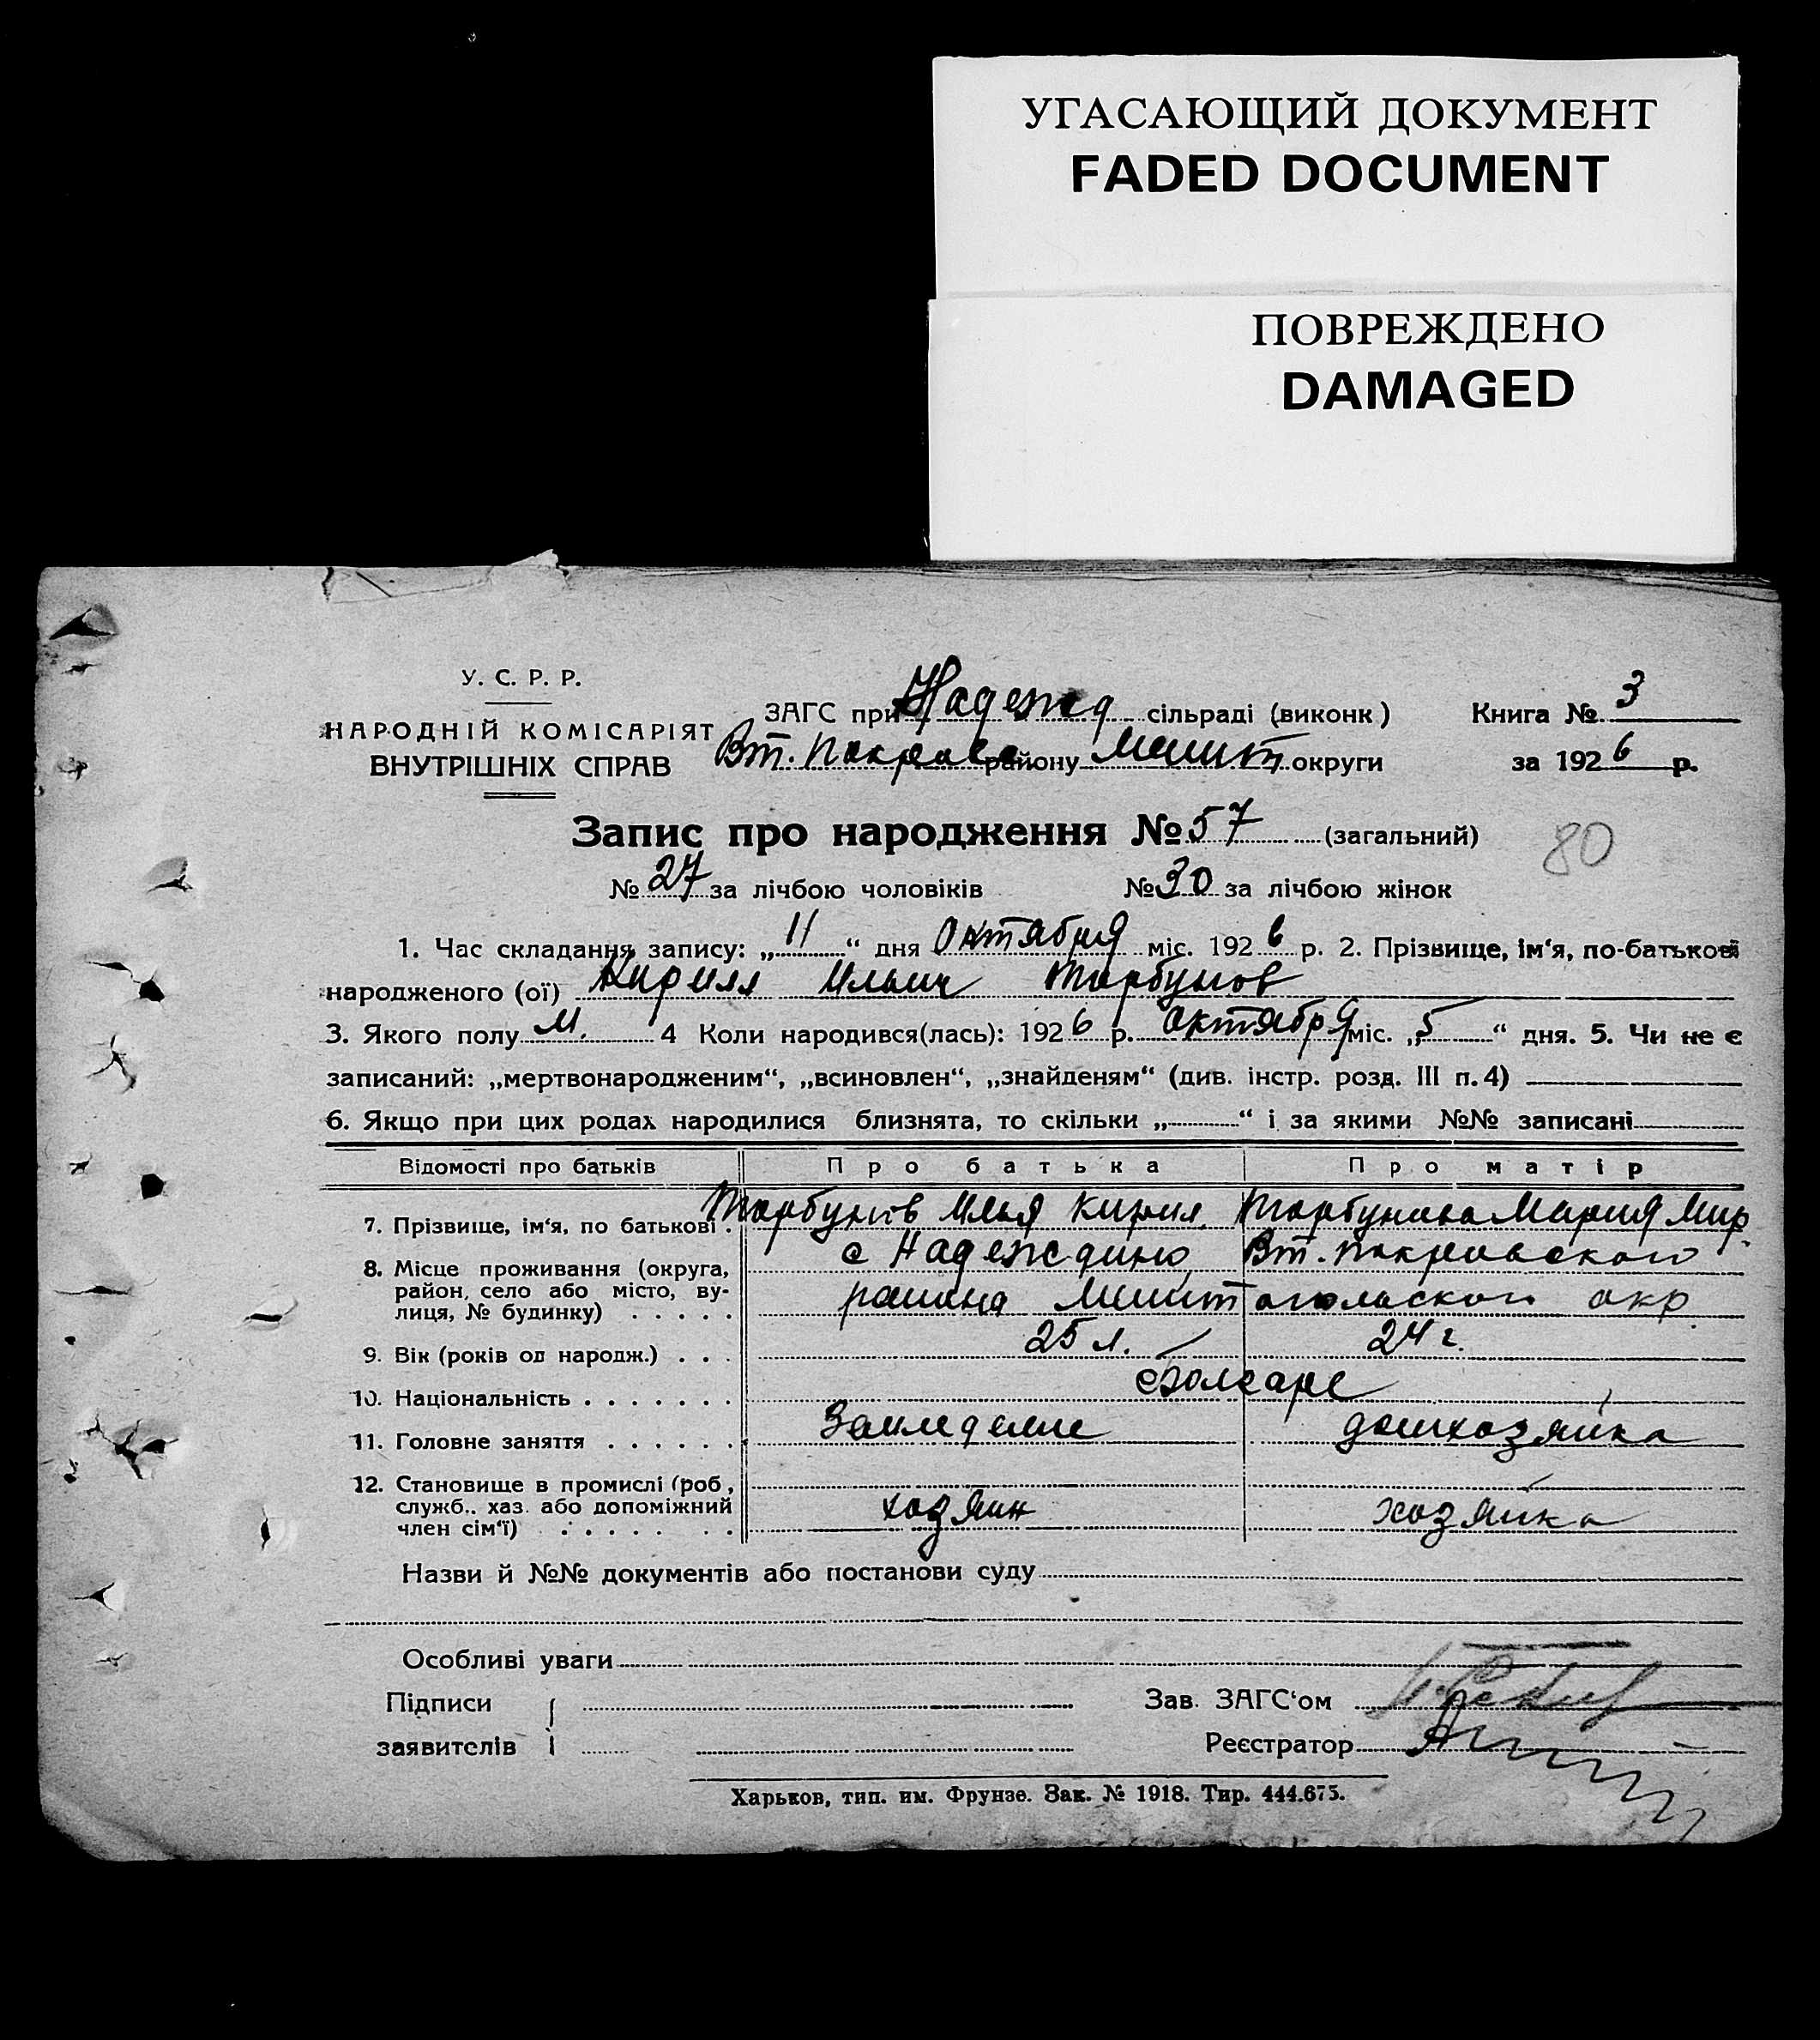 УГАСАЮЩИЙ ДОКУМЕНТ
FADED DOCUMENT
ПОВРЕЖДЕНО
DAMAGED
У. С. Р. Р.
НАРОДНІЙ КОМІСАРІЯТ
ВНУТРІШНІХ СПРАВ
ЗАГС при Надежд сільраді (виконк) Книга № 3
Вт. Покровс району Мелит округи за 1926 р.
Запис про народження № 57 (загальний)
80
№ 27 за лічбою чоловіків № 30 за лічбою жінок
1. Час складання запису: „11“ дня Октября міс. 1926 р. 2. Прізвище, ім‘я, по-батькові
народженого (ої) Кирилл Ильич Торбунов
3. Якого полу М. 4 Коли народився(лась): 1926 р. Октября міс. „5“ дня. 5. Чи не є
записаний: „мертвонародженим“, „всиновлен“, „знайденям“ (див. інстр. розд. III п. 4)
6. Якщо при цих родах народилися близнята, то скільки „ “ і за якими №№ записані
Відомості про батьків Про батька Про матір
7. Прізвище, ім‘я, по батькові Торбунов Илья Кирил. Торбунова Мария Мир.
8. Місце проживання (округа, район, село або місто, вулиця, № будинку) с Надеждино Вт. покровского
района Мелитопольской окр
9. Вік (років од народж.) 25 л. 24 г.
10. Національність Болгаре
11. Головне заняття Земледелие домхозяйка
12. Становище в промислі (роб, служб.. хаз. або допоміжний член сім‘ї) хозяин хозяйка
Назви й №№ документів або постанови суду
Особливі уваги
Підписи Зав. ЗАГС‘ом
заявителів Реєстратор
Харьков, тип. им. Фрунзе. Зак. № 1918. Тир. 444.675.